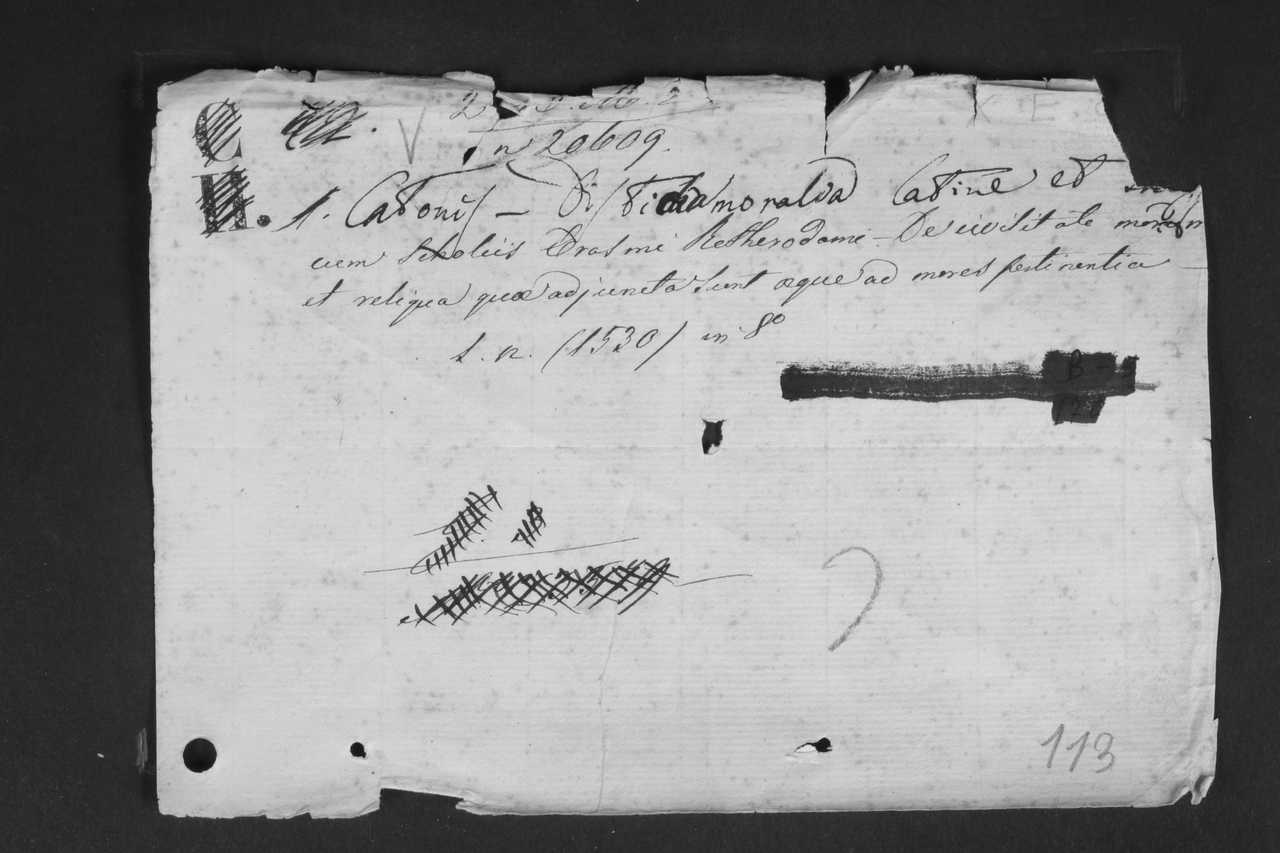 V
n 20609.
1. Catonis — Disticha moralia Latine et
cum scholiis Erasmi Rotherodami — De civilitate morum
et reliqua quæ adjuncta sunt æque ad mores pertinentia —
s. n. (1530) in 8º
B -
113